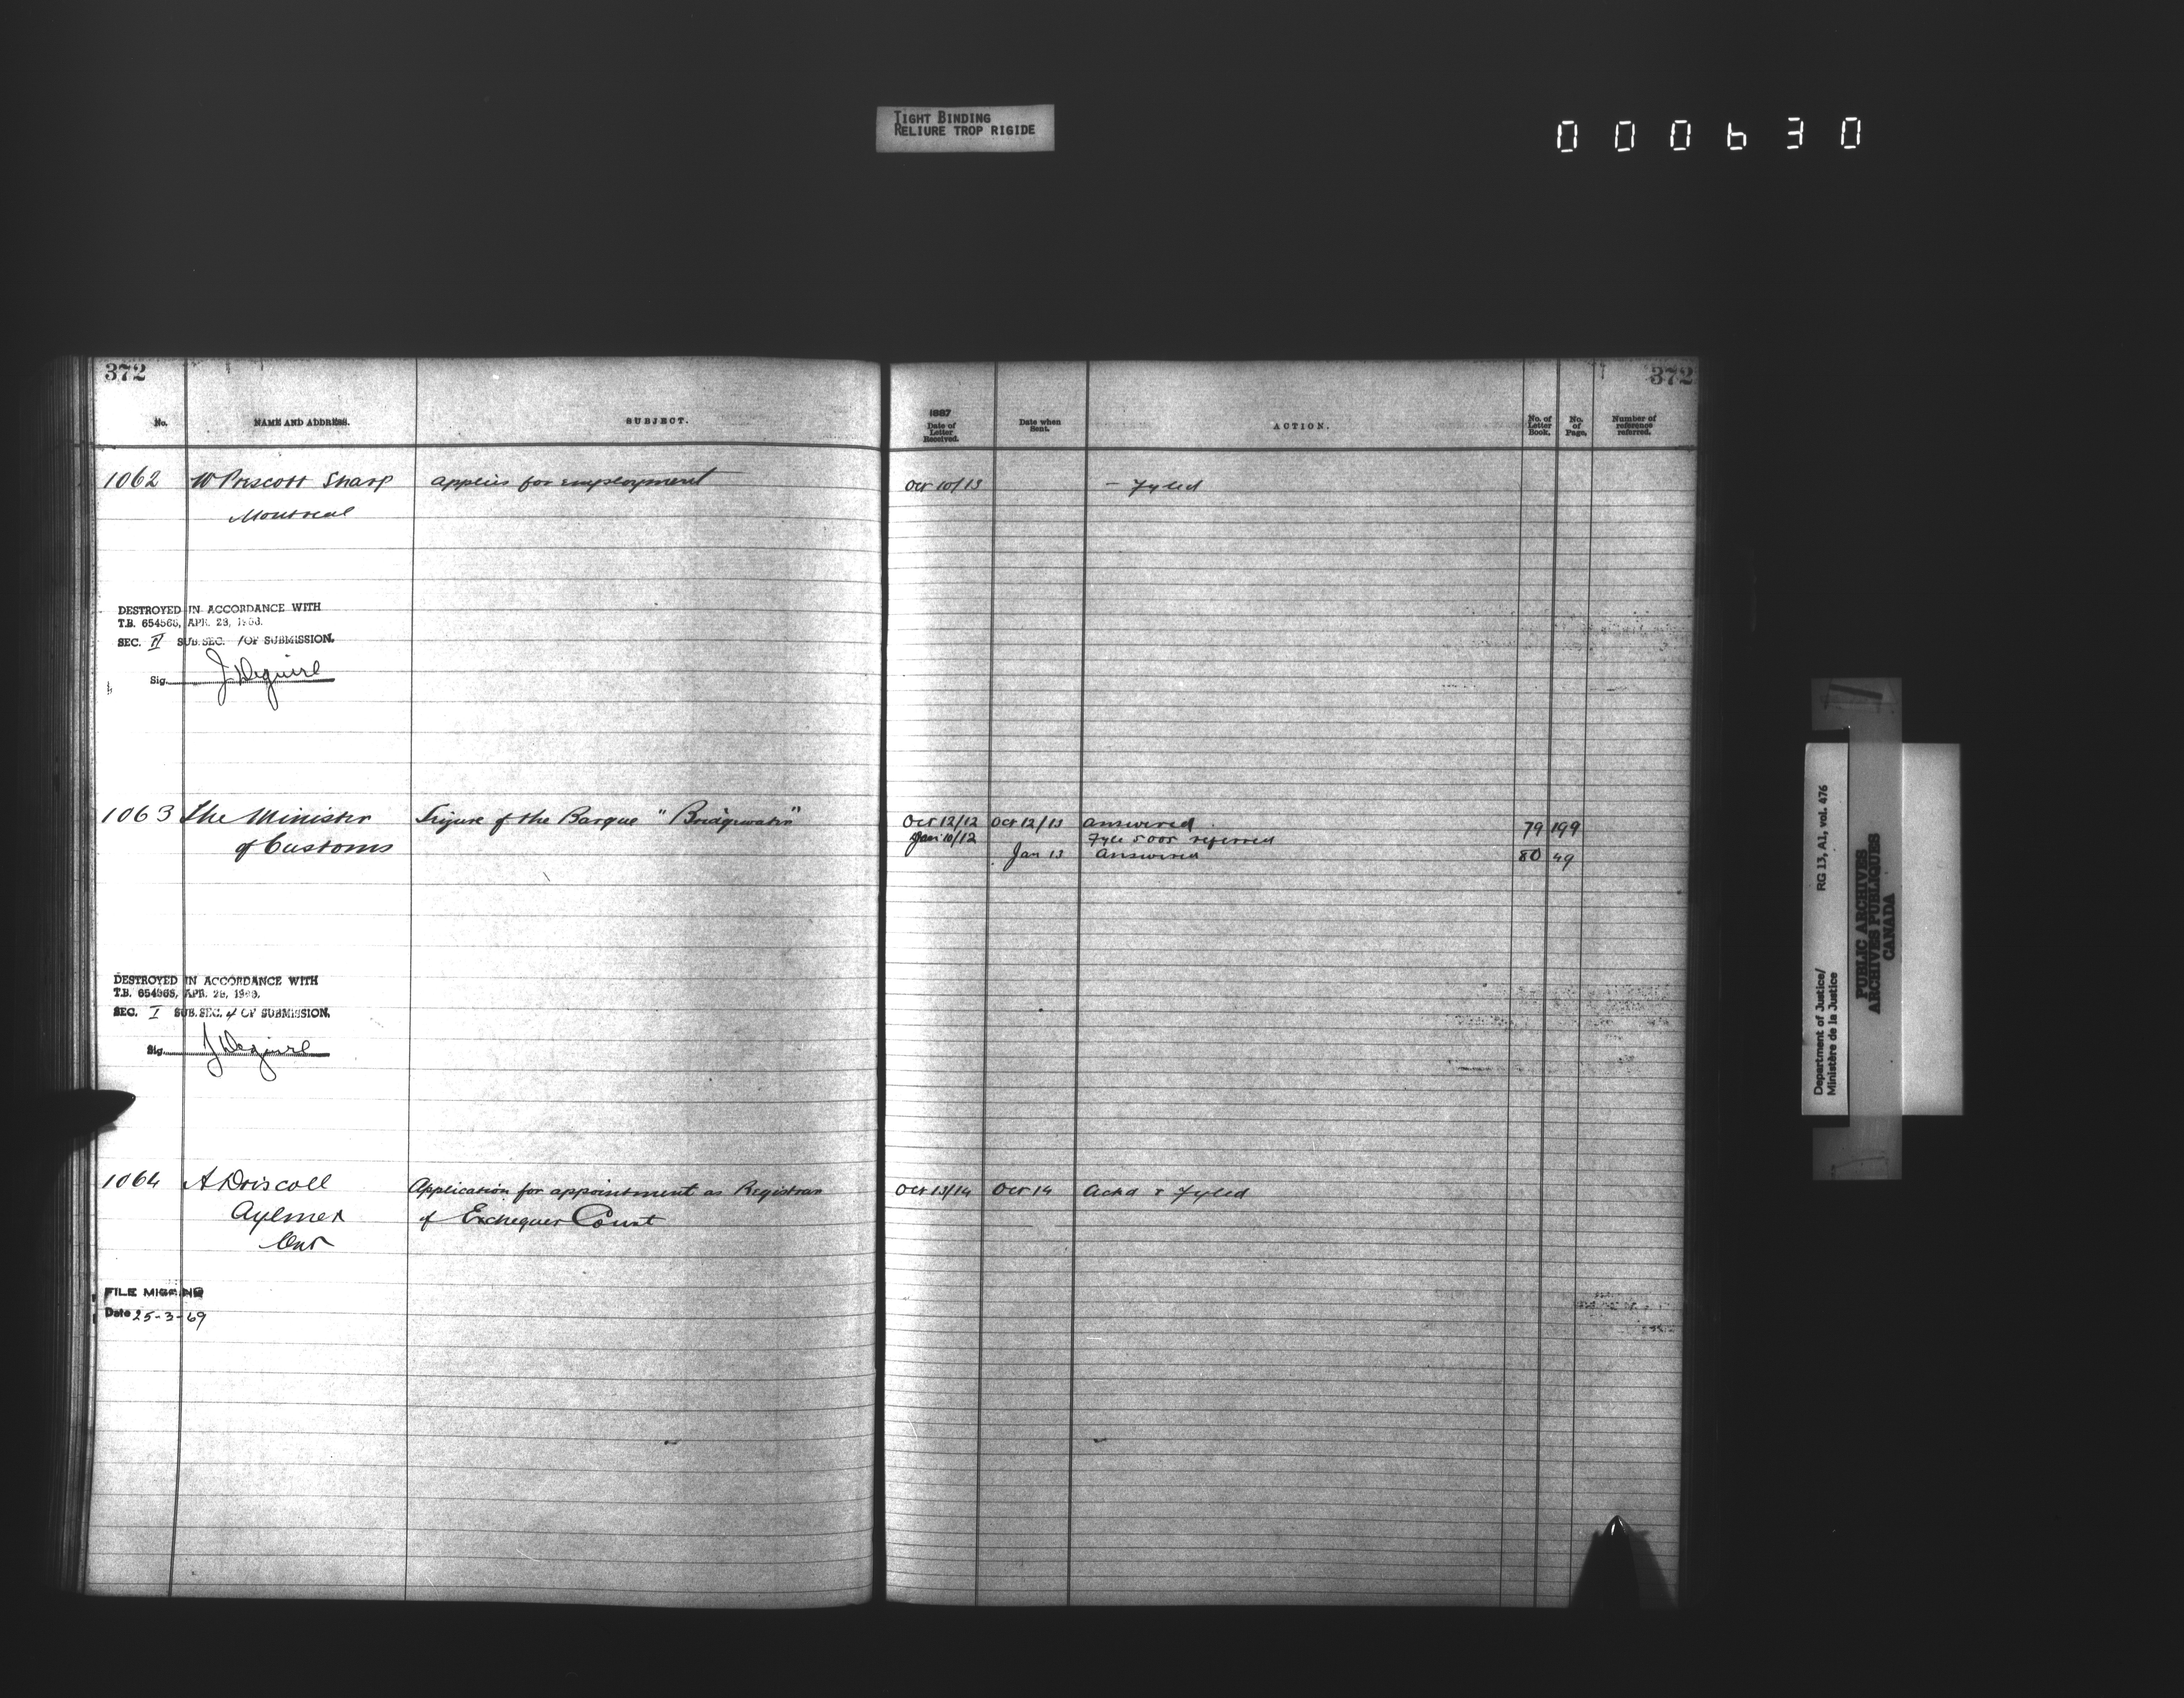 TIGHT BINDING
RELIURE TROP RIGIDE
000630
372
No. NAME AND ADDRESS. SUBJECT.
1062 W Prescott Sharp applies for employment
Montreal
DESTROYED IN ACCORDANCE WITH
T.B. 654565, APR. 23,
SEC. II SUB.SEC. 1 OF SUBMISSION.
Sig. J Deguire
1063 The Minister Seizure of the Barque "Bridgewater"
of Customs
DESTROYED IN ACCORDANCE WITH
T.B. 654565, APR.
SEC. I SUB.SEC. 4 OF SUBMISSION.
Sig. J Deguire
1064 A Driscoll Application for appointment as Registrar
Aylmer of Exchequer Court
Ont
FILE MISSING
Date 25-3-69
372
1887
Date of Letter Received. Date when Sent. ACTION. No. of Letter Book. No. of Page. Number of reference referred.
Oct 10/13 - Fyled
Oct 12/12 Oct 12/13 answered 79 199
Jan 10/12 Fyle 5005 referred
Jan 13 answered 80 49
Oct 13/14 Oct 14 Ackd & Fyled
Department of Justice/ RG 13, A1, vol. 476
Ministère de la Justice
PUBLIC ARCHIVES
ARCHIVES PUBLIQUES
CANADA